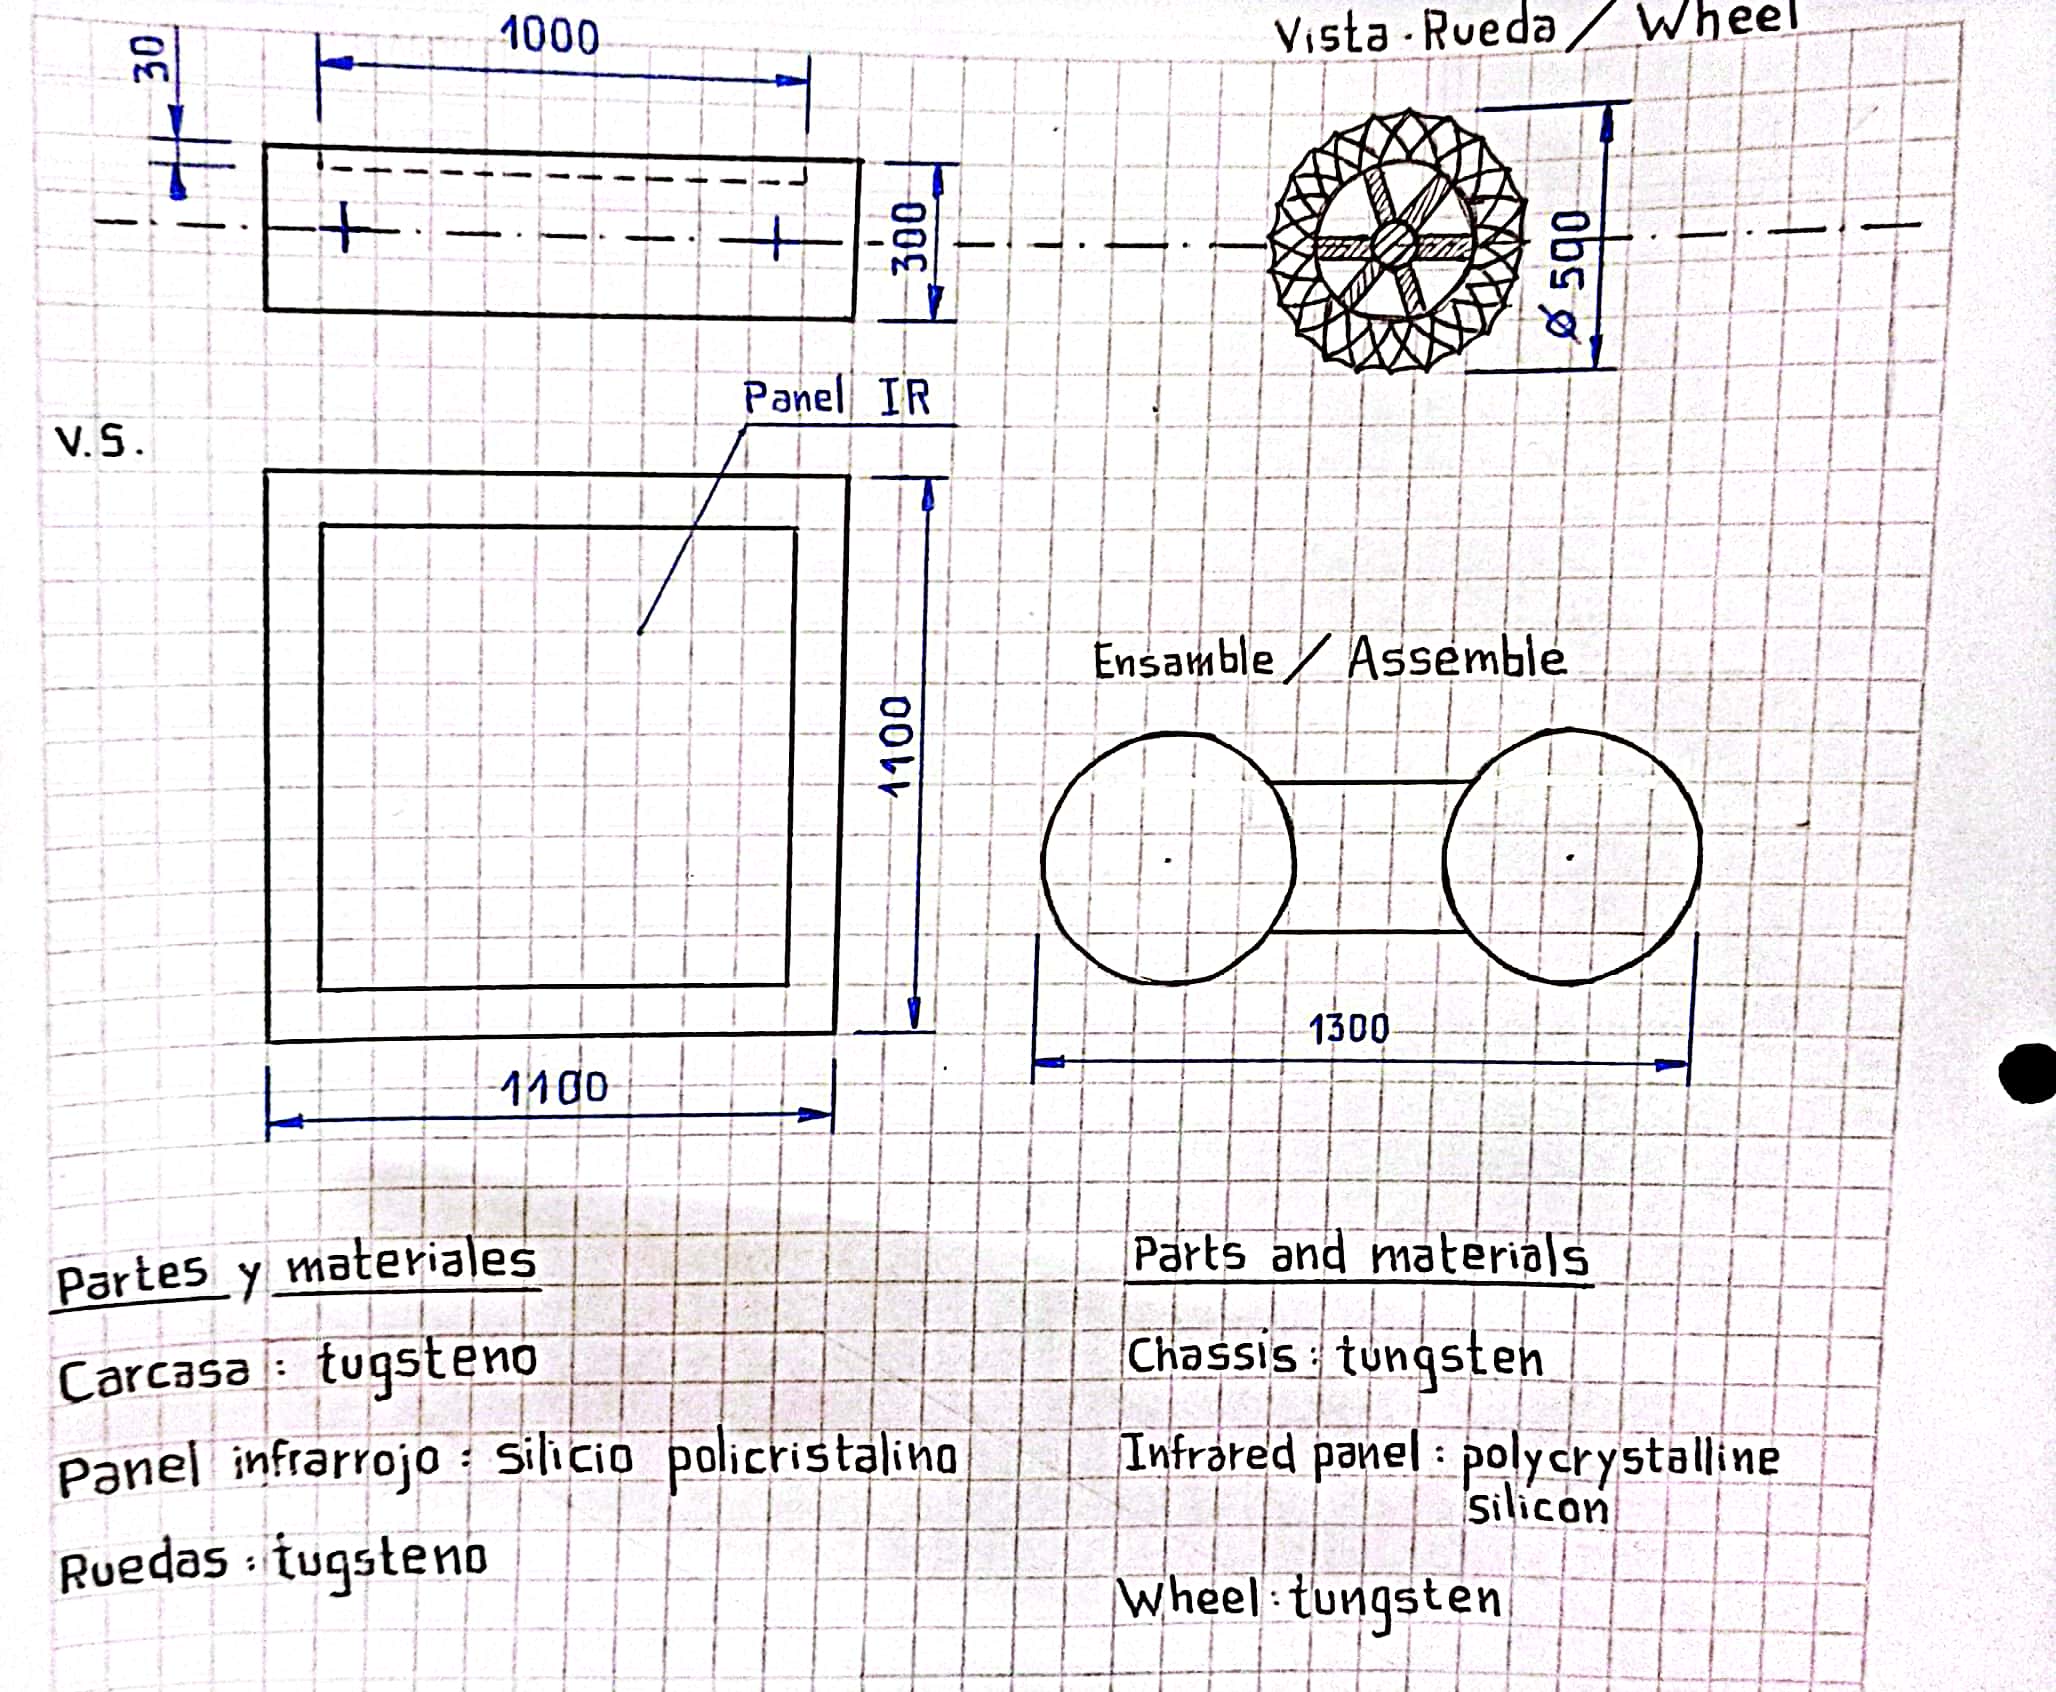 30
1000
Vista·Rueda / Wheel
300
Ø 500
Panel IR
V.S.
1100
Ensamble / Assemble
1300
1100
Partes y materiales
Carcasa: tugsteno
Panel infrarrojo: silicio policristalino
Ruedas: tugsteno
Parts and materials
Chassis: tungsten
Infrared panel: polycrystalline
silicon
Wheel: tungsten